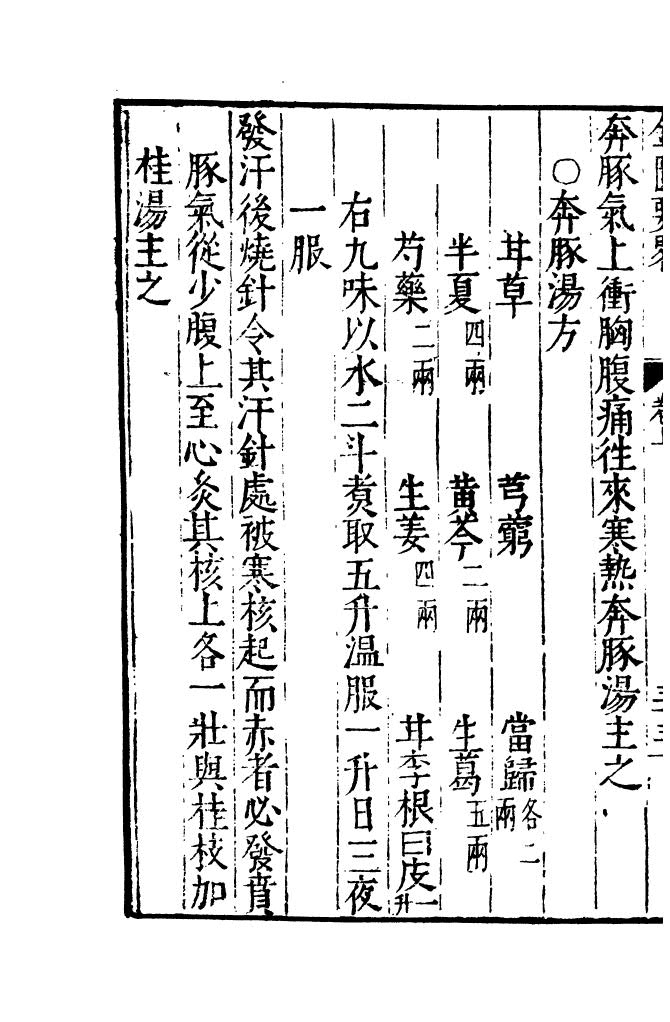 奔豚氣上衝胸腹痛往來寒熱奔豚湯主之
○奔豚湯方
甘草 芎藭 當歸各二兩
半夏四兩 黃芩二兩 生葛五兩
芍藥二兩 生姜四兩 甘李根白皮一升
右九味以水二斗煑取五升溫服一升日三夜
一服
發汗後燒針令其汗針處被寒核起而赤者必發賁
豚氣從少腹上至心灸其核上各一壯與桂枝加
桂湯主之